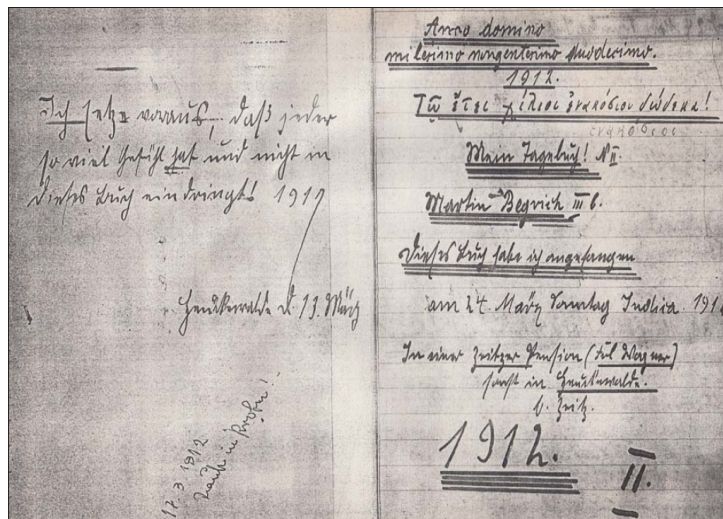 Ich setze voraus, daß jeder
so viel Gefühl hat und nicht in
dieses Buch eindringt! 1912
Heuckewalde d. 13. März
17. 3. 1912
Anno domino
millesimo nongentesimo duodecimo.
1912.
Τῷ ἔτει χίλιοι ἐνακόσιοι δώδεκα!
ἐνακόσιοι
Mein Tagebuch! N II.
Martin Begrich III b.
Dieses Buch habe ich angefangen
am 24. März Sonntag Judica 1912
In einer Zeitzer Pension (Frl. Wagner)
sonst in Heuckewalde.
b. Zeitz.
1912. II.